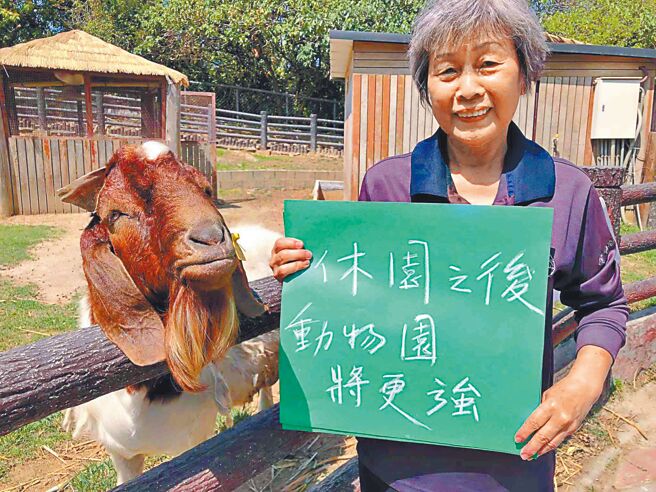 休園之後
動物園
將更強